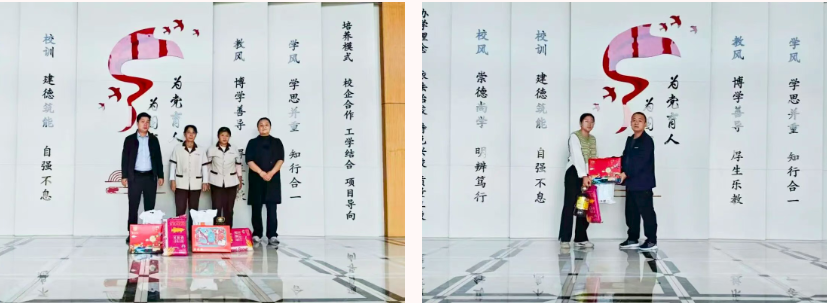 校训 建德筑能 自强不息
为党育人
为国
教风 博学善导
学风 学思并重 知行合一
培养模式 校企合作 工学结合 项目导向
办学理念
校风 崇德尚学 明辨笃行
校训 建德筑能 自强不息
为党育人
为国
教风 博学善导 厚生乐教
学风 学思并重 知行合一